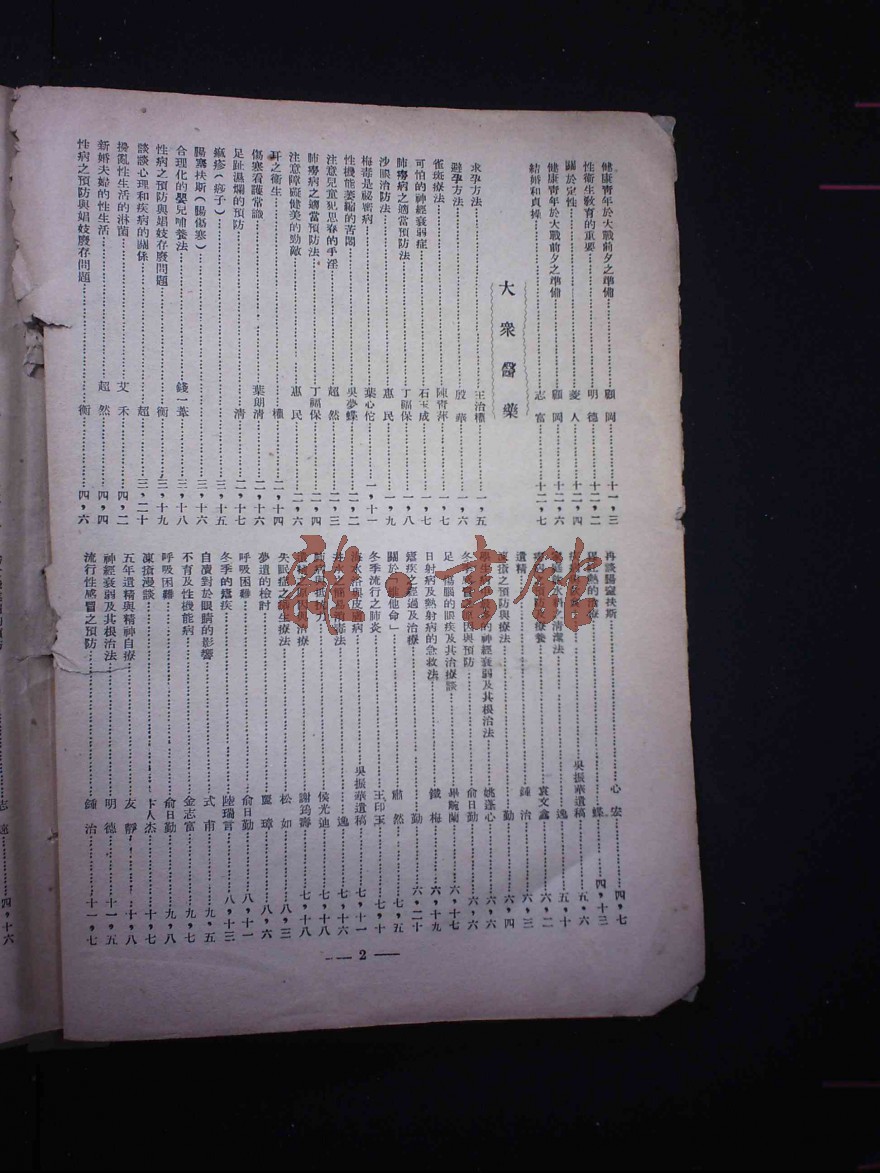 健康靑年於大戰前夕之準備 顧岡 十一,三
性衞生敎育的重要 明德 十二,二
關於定性 菱人 十二,四
健康靑年於大戰前夕之準備 顧岡 十二,六
結婚和貞操 志富 十二,七
大衆醫藥
求孕方法 王治權 一,五
避孕方法 殷華 一,六
雀斑療法 陳霄萍 一,七
可怕的神經衰弱症 石玉成 一,七
肺癆病之適當預防法 丁福保 一,八
沙眼治防法 惠民 一,九
梅毒是秘密病 葉心佗 一,十一
性機能萎縮的苦悶 吳夢蝶 二,二
注意兒童犯思春的手淫 超然 二,三
肺癆病之適當預防法 丁福保 二,四
注意障礙健美的勁敵 惠民 二,六
耳之衞生 權 二,十四
傷寒看護常識 葉朗淸 二,十六
足趾濕爛的預防 淸 二,十七
痲疹(痧子) 三,十五
腸窒扶斯(腸傷寒) 三,十六
合理化的嬰兒哺養法 錢一葦 三,十八
性病之預防與娼妓存廢問題 衞 三,十九
談談心理和疾病的關係 超 三,二十
擾亂性生活的淋菌 艾禾 四,二
新婚夫婦的性生活 超然 四,四
性病之預防與娼妓廢存問題 衞 四,六
再談腸窒扶斯 心安 四,七
熱的治療 蝶 四,十三
吳振華遺稿 五,六
飮水料淸潔法 逸 五,十
癆病之預防及療養 袁文鑫 六,二
遺精 鍾治 六,三
凍瘡之預防與療法 勤 六,四
學生病中最多的神經衰弱及其根治法 姚蓬心 六,六
冬季感冒之原因與預防 俞日勤 六,六
足以傷腦的眼疾及其治療談 畢畹蘭 六,十七
日射病及熱射病的急救法 鐵梅 六,十九
瘧疾之經過及治療 勤 六,二十
關於「維他命」 肅然 七,五
冬季流行之肺炎 王印玉 七,十
海水浴與皮膚病 吳振華遺稿 七,十一
井水之簡易消毒法 逸 七,十六
肺病與抵抗力 侯光迪 七,十八
遺精之原因與治療 謝筠壽 七,十八
失眠症之攝生療法 松如 八,三
夢遺的檢討 麗璋 八,六
呼吸困難 俞日勤 八,十一
冬季的瘧疾 陸瑞言 八,十三
自瀆對於眼睛的影響 式甫 九,五
不育及性機能病 金志富 九,七
呼吸困難 俞日勤 九,八
凍瘡漫談 卞人杰 十,七
五年遺精與精神自療 友靜 十,八
神經衰弱及其根治法 明德 十一,五
流行性感冒之預防 鍾治 十一,七
— 2 —
志逸 四,十六